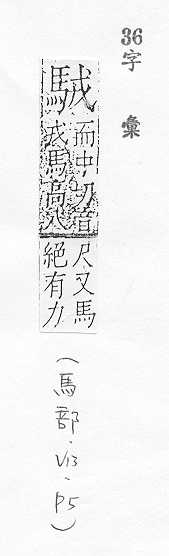 36
字彙
駥
而中切音
戎馬高八
尺又馬
絕有力
（馬部．V13．P5）